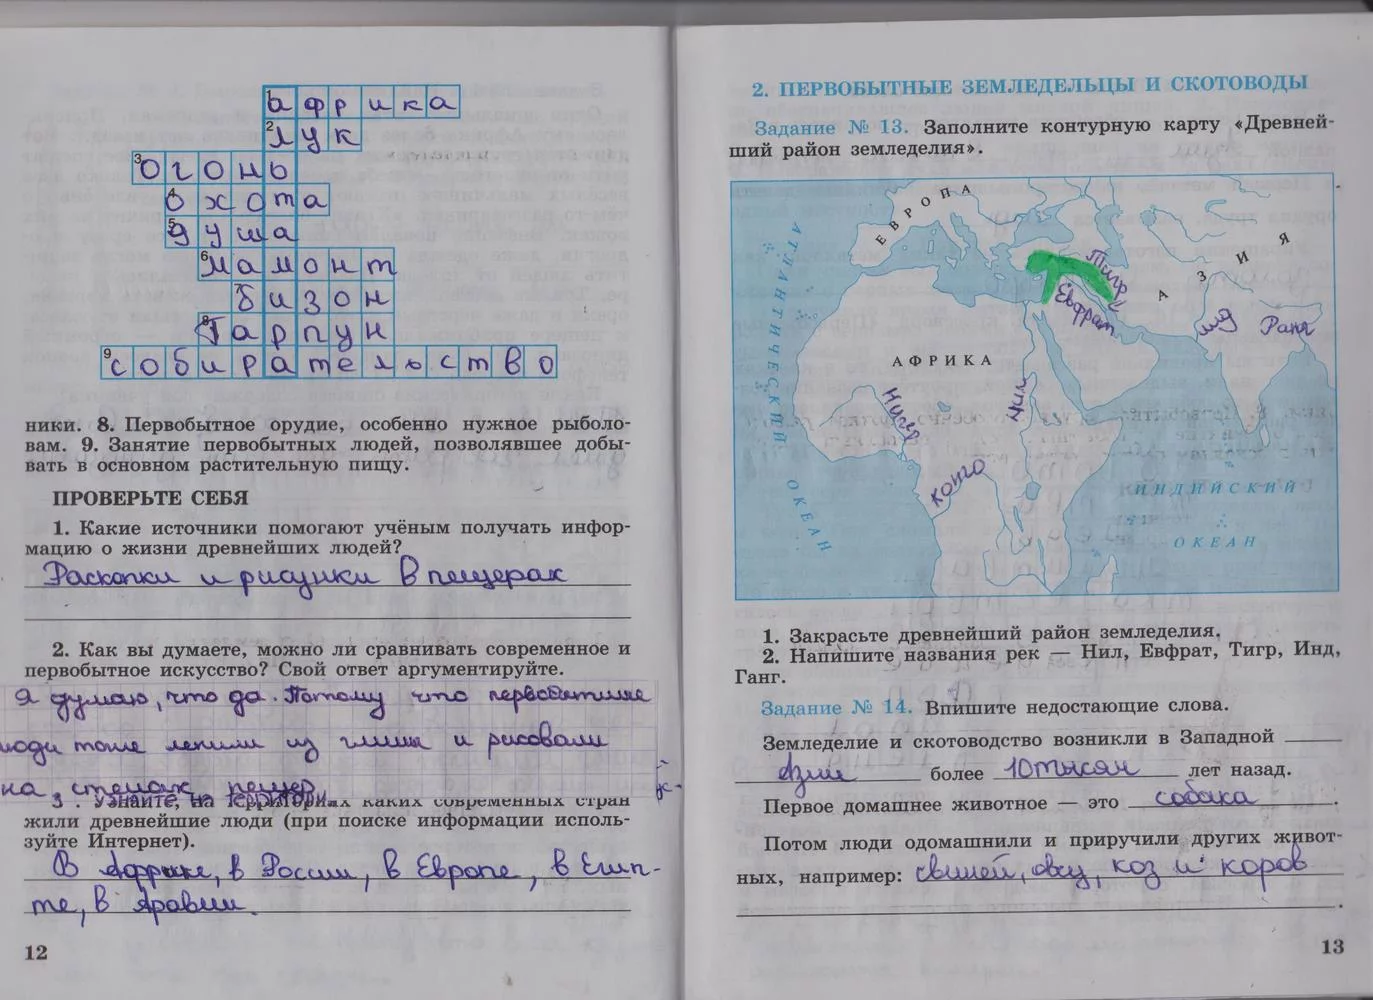 африка
лук
огонь
охота
душа
мамонт
бизон
гарпун
собирательство
ники. 8. Первобытное орудие, особенно нужное рыболо-
вам. 9. Занятие первобытных людей, позволявшее добы-
вать в основном растительную пищу.
ПРОВЕРЬТЕ СЕБЯ
1. Какие источники помогают учёным получать инфор-
мацию о жизни древнейших людей?
Раскопки и рисунки в пещерах
2. Как вы думаете, можно ли сравнивать современное и
первобытное искусство? Свой ответ аргументируйте.
Я думаю, что да. Потому что первобытные
люди тоже лепили из глины и рисовали
на стенах пещер
3. Узнайте, на территориях каких современных стран
жили древнейшие люди (при поиске информации исполь-
зуйте Интернет).
В Африке, в России, в Европе, в Егип-
те, в Аравии.
12
2. ПЕРВОБЫТНЫЕ ЗЕМЛЕДЕЛЬЦЫ И СКОТОВОДЫ
Задание № 13. Заполните контурную карту «Древней-
ший район земледелия».
ЕВРОПА
АЗИЯ
АТЛАНТИЧЕСКИЙ ОКЕАН
Тигр
Евфрат
Инд
Ганг
АФРИКА
Нигер
Нил
Конго
ИНДИЙСКИЙ
ОКЕАН
1. Закрасьте древнейший район земледелия.
2. Напишите названия рек — Нил, Евфрат, Тигр, Инд,
Ганг.
Задание № 14. Впишите недостающие слова.
Земледелие и скотоводство возникли в Западной
Азии более 10 тысяч лет назад.
Первое домашнее животное — это собака.
Потом люди одомашнили и приручили других живот-
ных, например: свиней, овец, коз и коров
13